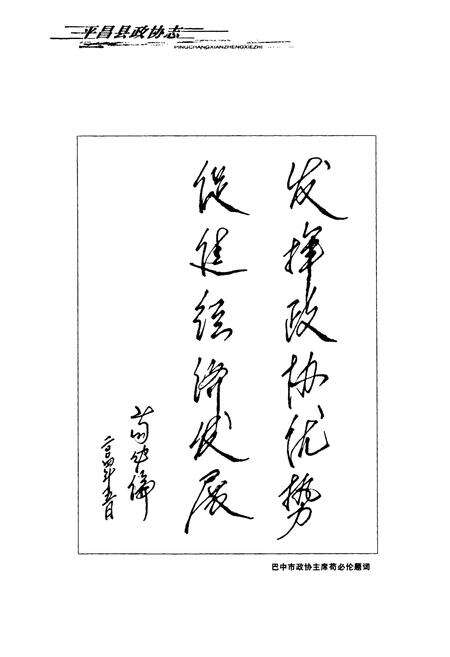 平昌县政协志
PINGCHANGXIANZHENGXIEZHI
发挥政协优势
促进经济发展
苟必伦
二〇〇四年五月
巴中市政协主席苟必伦题词